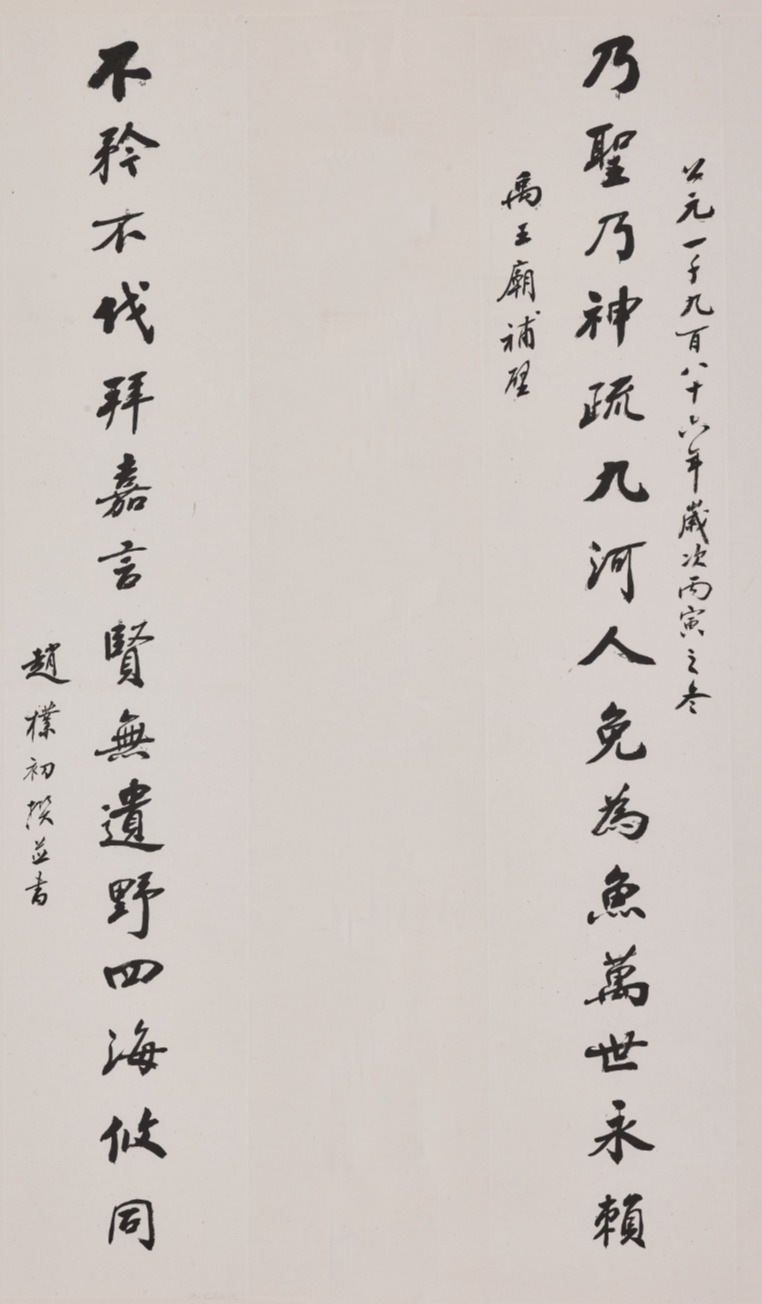 公元一千九百八十六年歲次丙寅之冬
乃聖乃神疏九河人免為魚萬世永賴
禹王廟補壁
不矜不伐拜嘉言賢無遺野四海攸同
趙樸初撰並書